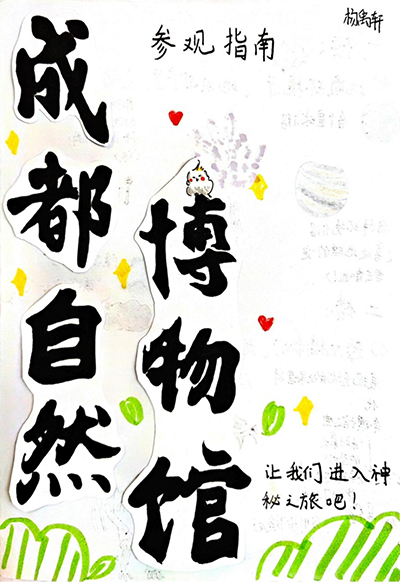 杨禹轩
参观指南
成都自然
博物馆
让我们进入神
秘之旅吧！